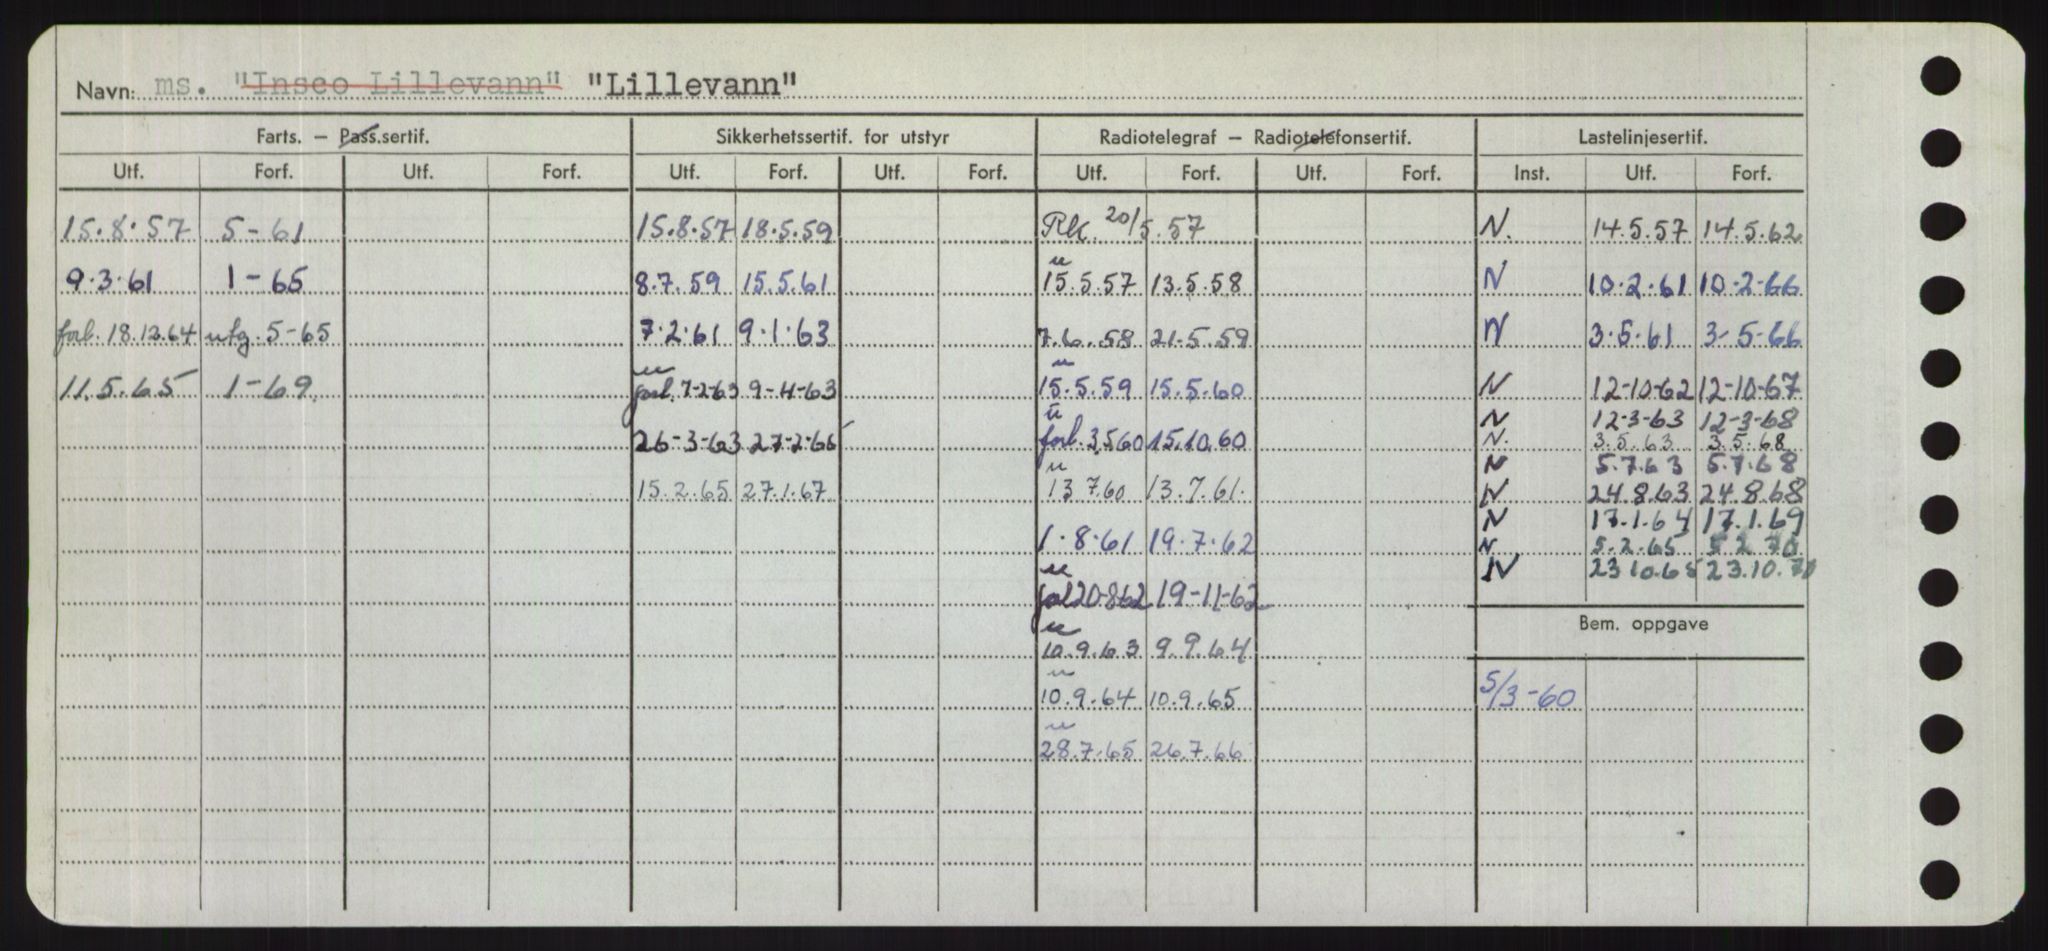 Navn: ms. "Insco Lillevann" "Lillevann"
Farts. — Pass.sertif. Sikkerhetssertif. for utstyr Radiotelegraf — Radiotelefonsertif. Lastelinjesertif.
Utf. Forf. Utf. Forf. Utf. Forf. Utf. Forf. Utf. Forf. Utf. Forf. Inst. Utf. Forf.
15.8.57 5-61 15.8.57 18.5.59 Rk. 20/5.57 N. 14.5.57 14.5.62
9.3.61 1-65 8.7.59 15.5.61 15.5.57 13.5.58 N 10.2.61 10-2-66
forl. 18.12.64 utg. 5-65 7.2.61 9.1.63 7.6.58 21.5.59 N 3.5.61 3-5-66
11.5.65 1-69 forl. 7-2-63 9-4-63 15.5.59 15.5.60 N 12-10-62 12-10-67
N 12-3-63 12-3-68
26-3-63 27-2-65 forl. 3.5.60 15.10.60 N. 3.5.63 3.5.68
N 5.7.63 5.7.68
15.2.65 27.1.67 13.7.60 13.7.61 N 24.8.63 24.8.68
N 17.1.64 17.1.69
1.8.61 19.7.62 N 5.2.65 5 2 70
N 23 10.65 23.10.70
forl 20-8-62 19-11-62
Bem. oppgave
10.9.63 9.9.64
10.9.64 10.9.65 5/3-60
28.7.65 26.7.66